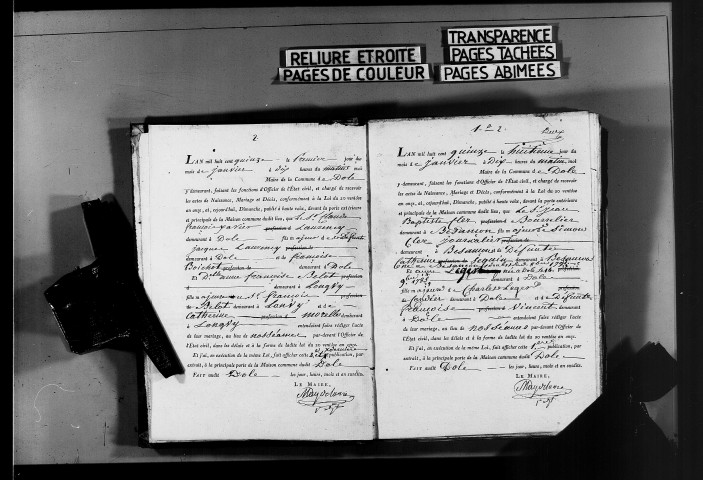 RELIURE ETROITE
PAGES DE COULEUR
TRANSPARENCE
PAGES TACHÉES
PAGES ABIMÉES
2
L'AN mil huit cent quinze le Premier jour du
mois de janvier à Dix heures du matin moi
Maire de la Commune de Dole
y demeurant, faisant les fonctions d'Officier de l'État civil, et chargé de recevoir
les actes de Naissance, Mariage et Décès, conformément à la Loi du 20 ventôse
an onze, et, cejourd'hui, Dimanche, publié à haute voix, devant la porte extérieure
et principale de la Maison commune dudit lieu, que Le Sr Claude
françois xavier profession de Laurency
demeurant à Dole fils majeur de
Jacques Laurency profession de
demeurant à Dole et de françoise
Boichot profession de demeurant à Dole
Et Dlle anne françoise Belot profession
demeurant à Longvy
fille majeure de Sr françois profession
de Belot demeurant à Longvy et de
Catherine profession de morelle demeurant
à Longvy entendaient faire rédiger l'acte
de leur mariage, au lieu de nos séances par-devant l'Officier de
l'État civil, dans les délais et à la forme de ladite loi du 20 ventôse an onze.
Et j'ai, en exécution de la même Loi, fait afficher cette publication, par
extrait, à la principale porte de la Maison commune dudit Dole
FAIT audit Dole les jour, heure, mois et an susdits.
LE MAIRE,
1 à 2.
Deux
L'AN mil huit cent quinze le huitième jour du
mois de janvier à Dix heures du matin moi
Maire de la Commune de Dole
y demeurant, faisant les fonctions d'Officier de l'État civil, et chargé de recevoir
les actes de Naissance, Mariage et Décès, conformément à la Loi du 20 ventôse
an onze, et, cejourd'hui, Dimanche, publié à haute voix, devant la porte extérieure
et principale de la Maison commune dudit lieu, que Le Sr Jean
Baptiste fler profession de Bourrelier
demeurant à Besançon fils majeur de Simon
fler journalier profession de
demeurant à Besançon et Défunte
Catherine profession de Seguin demeurant à Besançon
Et anne Leger
demeurant à Dole
fille majeure de Charles Leger profession
de demeurant à Dole et de Défunte
Françoise profession de Vincent demeurant
à Dole entendaient faire rédiger l'acte
de leur mariage, au lieu de nos séances par-devant l'Officier de
l'État civil, dans les délais et à la forme de ladite loi du 20 ventôse an onze.
Et j'ai, en exécution de la même Loi, fait afficher cette 1ère publication, par
extrait, à la principale porte de la Maison commune dudit Dole
FAIT audit Dole les jour, heure, mois et an susdits.
LE MAIRE,